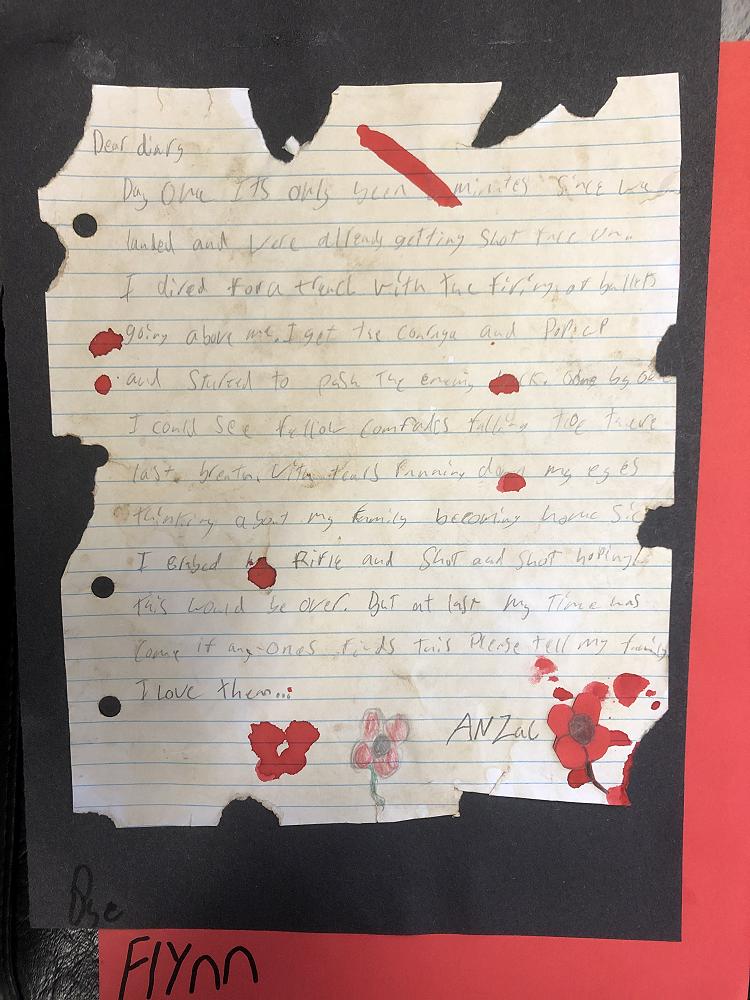 Dear diary
Day One ITs only been minutes Since we
landed and were allready getting Shot
I dived for a trench with the firing of bullets
going above me. I get the courage and POPUP
and Started to push The enemy back. One by one
I could see fellow comrades falling there
last breath. With tears running down my eyes
thinking about my family becoming home Sic
I Rifle and Shot and Shot hoping
this would be over. But at last my Time has
Come if any-ones finds this Please tell my family
I love them...
ANZac
Bye
FlYnn